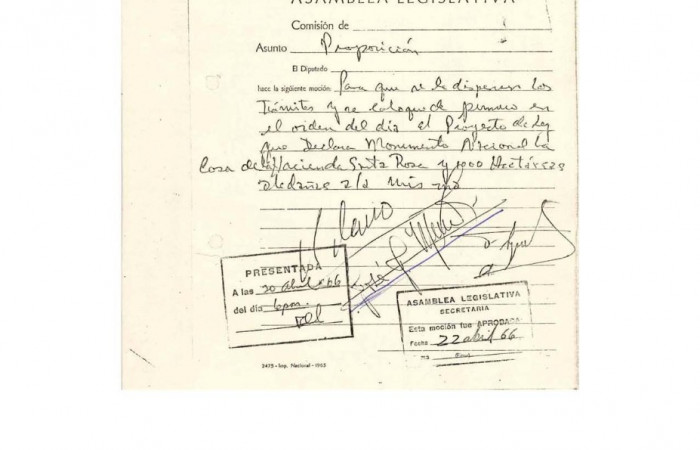 ASAMBLEA LEGISLATIVA
Comisión de
Asunto Proposición
El Diputado
hace la siguiente moción: Para que se le dispensen los
Trámites y se coloque de primero en
el orden del dia el Proyecto de Ley
que Declara Monumento Nacional la
Casa de la Hacienda Santa Rosa y 1000 Hectáreas
aledañas a la misma
PRESENTADA
A las 20 abril 66
del día 6 pm.
ASAMBLEA LEGISLATIVA
SECRETARIA
Esta moción fue APROBADA
Fecha 22 abril 66
2475-Imp. Nacional-1963